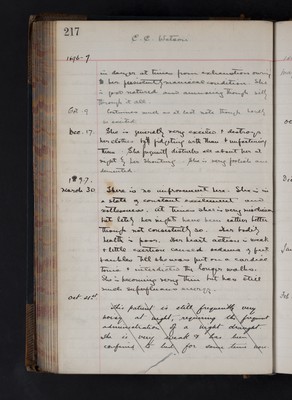 217
E. E. Watson
1896-7
in danger at times from exhaustion owing
to her persistently maniacal condition. She
is good natured and amusing through it
through it all.
Oct 9. Continues much as at last note though hardly
so excited.
Dec. 17. She is generally very excited & destroys
her clothes by fidgeting with them & unfastening
them. She frequently disturbs all about her at
night by her shouting. She is very feeble and
demented.
1897.
March 30. There is no improvement here. She is in
a state of constant excitement and
restlessness. At times she is very
but lately her nights have been rather better
though not consistently so. Her bodily
health is poor. Her heart action is weak
& little exertion caused oedema of feet
till she was put on a cardiac
tonic & interdicted the longer walks.
She is becoming very thin but has still
much superfluous energy.
Oct 21st This patient is still frequently very
noisy at night, requiring the frequent
administration of a night draught.
She is very weak & has been
confined to bed for some time now